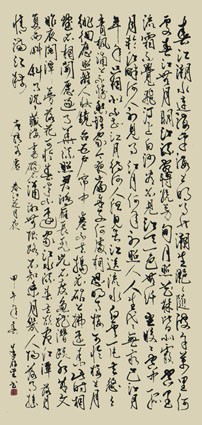 春江潮水连海平海上明月共潮生滟滟随波千万里何
处春江无月明江流宛转绕芳甸月照花林皆似霰空里
流霜不觉飞汀上白沙看不见江天一色无纤尘皎皎空中孤
月轮江畔何人初见月江月何年初照人人生代代无穷已江月
年年望相似不知江月待何人但见长江送流水白云一片去悠悠
青枫浦上不胜愁谁家今夜扁舟子何处相思明月楼可怜楼上月
徘徊应照离人妆镜台玉户帘中卷不去捣衣砧上拂还来此时相
望不相闻愿逐月华流照君鸿雁长飞光不度鱼龙潜跃水成文
昨夜闲潭梦落花可怜春半不还家江水流春去欲尽江潭落月
复西斜斜月沉沉藏海雾碣石潇湘无限路不知乘月几人归落月摇
情满江树
春江花月夜
甲午年春